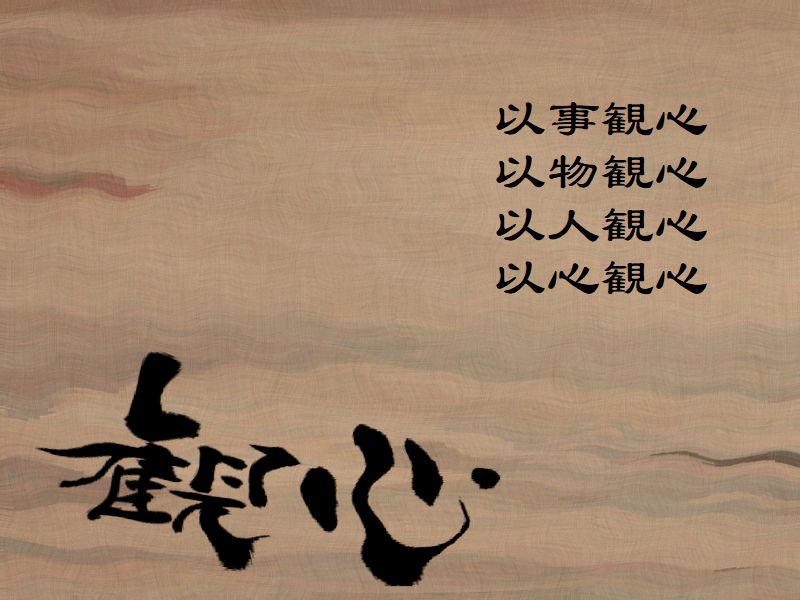 以事観心
以物観心
以人観心
以心観心
観心